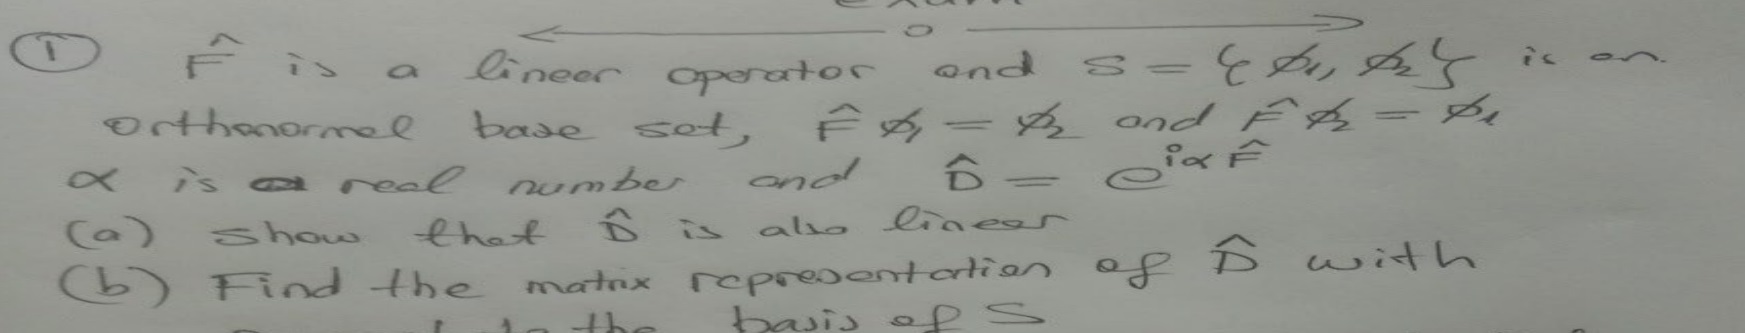 ① F̂ is a lineer operator and S = { ϕ₁, ϕ₂ } is an
orthonormel base set, F̂ ϕ₁ = ϕ₂ and F̂ ϕ₂ = ϕ₁
α is real number and D̂ = e^{iαF̂}
(a) show that D̂ is also linear
(b) Find the matrix representation of D̂ with
to the basis of S